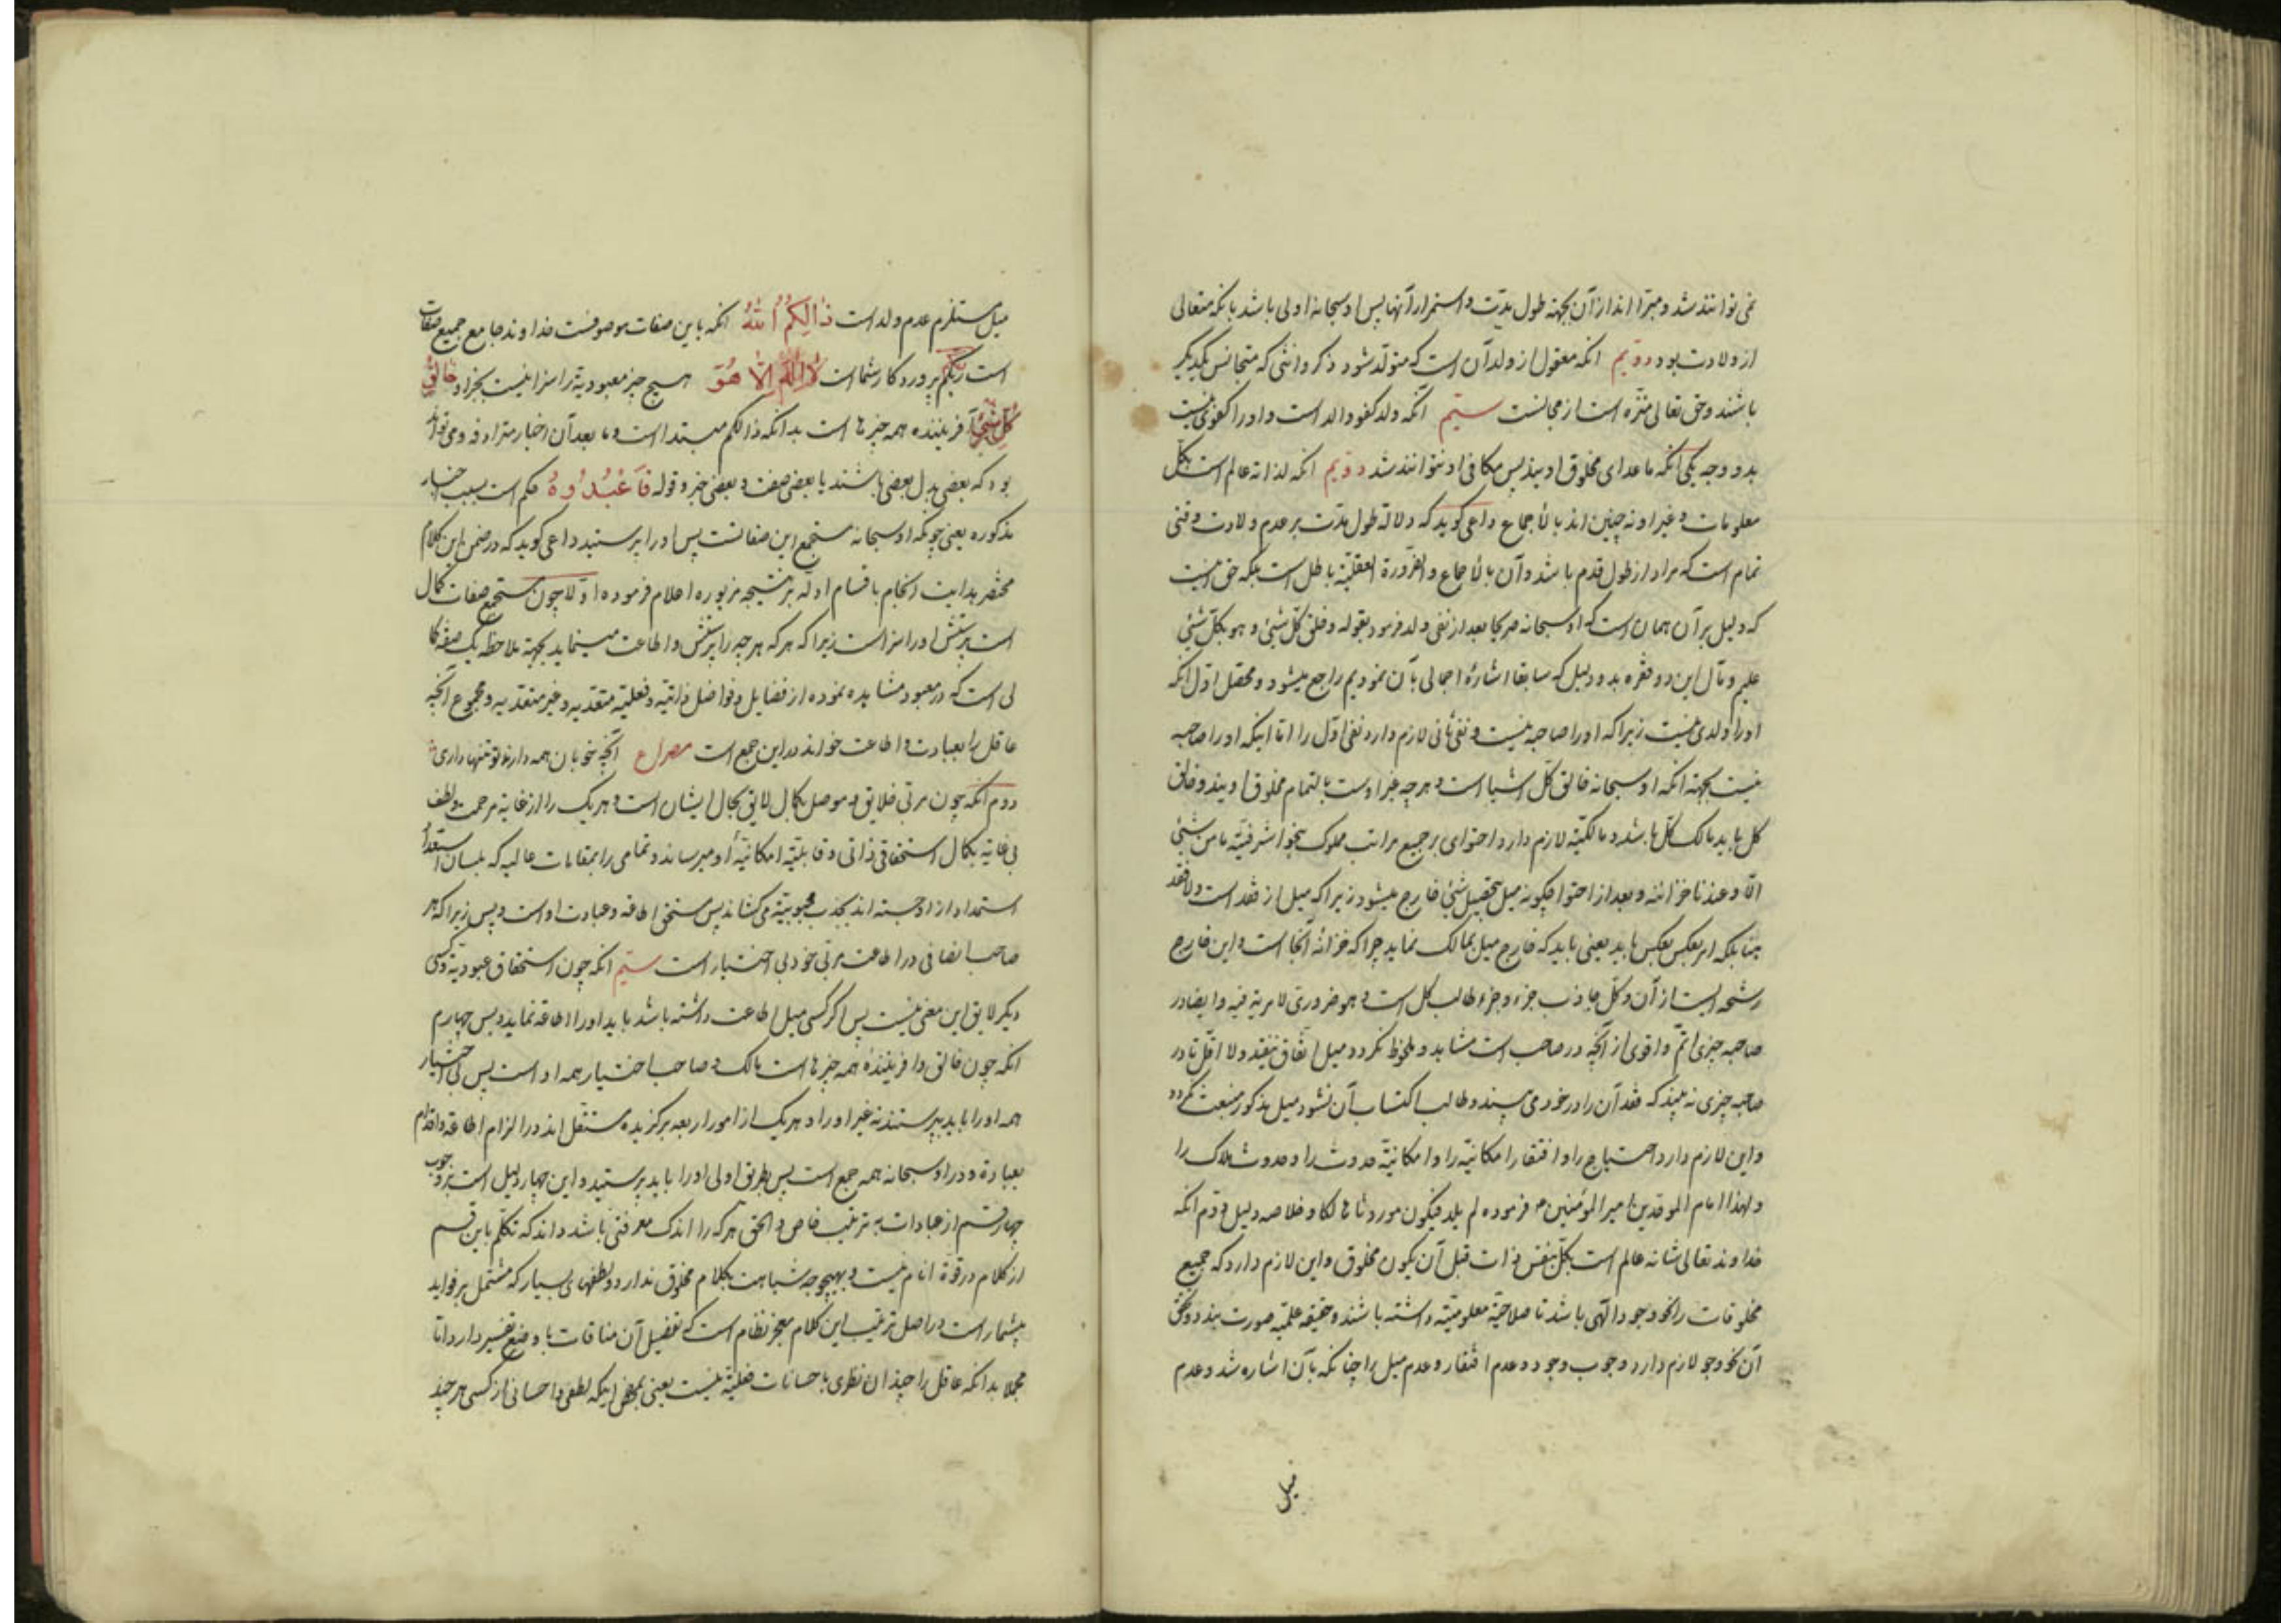 نمی توانند شد و مبرا اند از آن بجهة طول مدت و استمرار آنها پس او سبحانه اولی باشد بانکه متعالی
از ولادت بود دویم انکه معقول از ولد آن است که متولد شود ذکر و انثی که متجانس یکدیگر
باشند و حق تعالی منزه است از مجانست سیم انکه ولد کفو والد است و او را کفوی نیست
بدو وجه یکی انکه ما عدای مخلوق اویند پس مکافی او نتوانند شد دویم انکه لذاته عالم است بکل
معلومات و غیر او نه چنین اند بالاجماع داعی کوید که دلالة طول مدت بر عدم ولادت وقتی
تمام است که مراد از طول قدم باشد و آن بالاجماع و الضرورة العقلیة باطل است بلکه حق اینست
که دلیل بر آن همان است که او سبحانه صریحا بعد از نفی ولد فرمود بقوله و خلق کل شیٔ و هو بکل شیٔ
علیم و مآل این دو فقره بدو دلیل که سابقا اشارهٔ اجمالی بآن نمودیم راجع میشود و محصل اول انکه
او را ولدی نیست زیرا که او را صاحبه نیست و نفی ثانی لازم دارد نفی اول را اما اینکه او را صاحبه
نیست بجهة انکه او سبحانه خالق کل اشیا است و هر چه جز اوست بالتمام مخلوق اویند و خالق
کل باید مالک کل باشد و مالکیة لازم دارد احتوای بر جمیع مراتب مملوک بنحو اشرفیة ما من شیٔ
الا و عندنا خزائنه و بعد از احتوا چگونه میل بتحصیل شیٔ خارج میشود زیرا که میل از فقد است و لا فقد
بلکه امر بعکس باید یعنی باید که خارج میل بمالک نماید چرا که خزانه آنجا است و این خارج
رشحه ایست از آن و کل جاذب جزء و جزء طالب کل است و هو ضروری لا مریة فیه و ایضا در
صاحبه چیزی اتم و اقوی از آنچه در صاحب است مشاهد و ملحوظ نکردد میل اتفاق نیفتد و لا اقل تا در
صاحبه چیزی نه بیند که فقد آن را در خود می بیند و طالب اکتساب آن نشود میل مذکور منبعث نکردد
و این لازم دارد احتیاج را و افتقار امکانیة را و امکانیة حدوث را و حدوث هلاک را
و لهذا امام الموحدین امیر المؤمنین ع فرموده لم یلد فیکون موروثا هالکا و خلاصه دلیل دوم انکه
خداوند تعالی شانه عالم است بکل بنفس ذات قبل آن یکون مخلوق و این لازم دارد که جمیع
مخلوقات را نحو وجود الهی باشد تا صلاحیة معلومیة داشته باشند و حقیقه علمیه صورت بندد و تحقق
آن نحو وجود لازم دارد وجوب وجود و عدم افتقار و عدم میل را چنانکه بآن اشاره شد و عدم
میل
میل مستلزم عدم ولد است ذالکم الله انکه باین صفات موصوفست خداوند جامع جمیع صفات
است ربکم پروردکار شما است لا اله الا هو هیچ چیز معبودیة را سزا نیست بجز او خالق
کل شیٔ آفریننده همه چیزها است بدانکه ذالکم مبتدا است و ما بعد آن اخبار مترادفه و می تواند
بود که بعضی بدل بعضی باشند یا بعضی صفت و بعضی خبر و قوله فاعبدوه حکم است بسبب اخبار
مذکوره یعنی چونکه او سبحانه مستجمع این صفاتست پس او را بپرستید داعی کوید که در ضمن این کلام
مختصر بدایت انجام باقسام ادله بر نتیجه مزبوره اعلام فرموده اولا چون مستجمع صفات کمال
است پرستش او را سزا است زیرا که هر که هر چه را پرستش و اطاعت مینماید بجهة ملاحظه یک صفه کما
لی است که در معبود مشاهده نموده از فضایل و فواضل ذاتیه و فعلیة متعدیه و غیر متعدیه و مجموع آنچه
عاقل را بعبادت و اطاعت خواند در این جمع است مصراع آنچه خوبان همه دارند تو تنها داری
دوم انکه چون مربی خلایق و موصل بکمال لایق بحال ایشان است و هر یک را از غایة مرحمت و لطف
بی غایة بکمال استحقاقی ذاتی و قابلیة امکانیه او میرساند و تمامی را بمقامات عالیه که بلسان استعداد
استمداد از او جسته اند بجذب محبوبیة می کشاند پس مستحق اطاعه و عبادت او است و بس زیرا که هر
صاحب انصافی در اطاعت مربی خود بی اختیار است سیم انکه چون استحقاق عبودیة و کسی
دیکر لایق این معنی نیست پس اکر کسی میل اطاعت داشته باشد باید او را اطاعه نماید و بس چهارم
انکه چون خالق و افرینندهٔ همه چیزها است مالک و صاحب اختیار همه او است پس بی اختیار
همه او را باید بپرستند نه غیر او را و هر یک از امور اربعه برکزیده مستقل اند در الزام اطاعه و اقدام
بعبادة و در او سبحانه همه جمع است پس بطریق اولی او را باید پرستید و این چهار دلیل است بر وجوب
چهار قسم از عبادات به ترتیب خاص و الحق هر که را اندک معرفتی باشد داند که تکلم باین قسم
از کلام در قوة انام نیست و بهیچوجه شباهت بکلام مخلوق ندارد و لطفهای بسیار که مشتمل بر فواید
بیشمار است در اصل ترتیب این کلام معجز نظام است که تفصیل آن منافات با وضع تفسیر دارد اما
مجملا بدانکه عاقل را چندان نظری باحسانات فعلیة نیست یعنی بمحض اینکه لطفی و احسانی از کسی هر چند